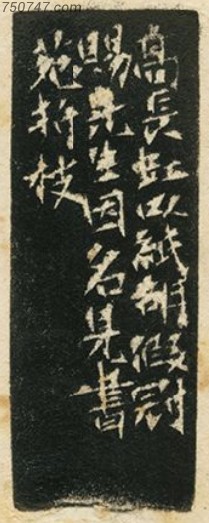 750747.com
高長虹以紙胡假冠
賜先生因名是書
苑将枝